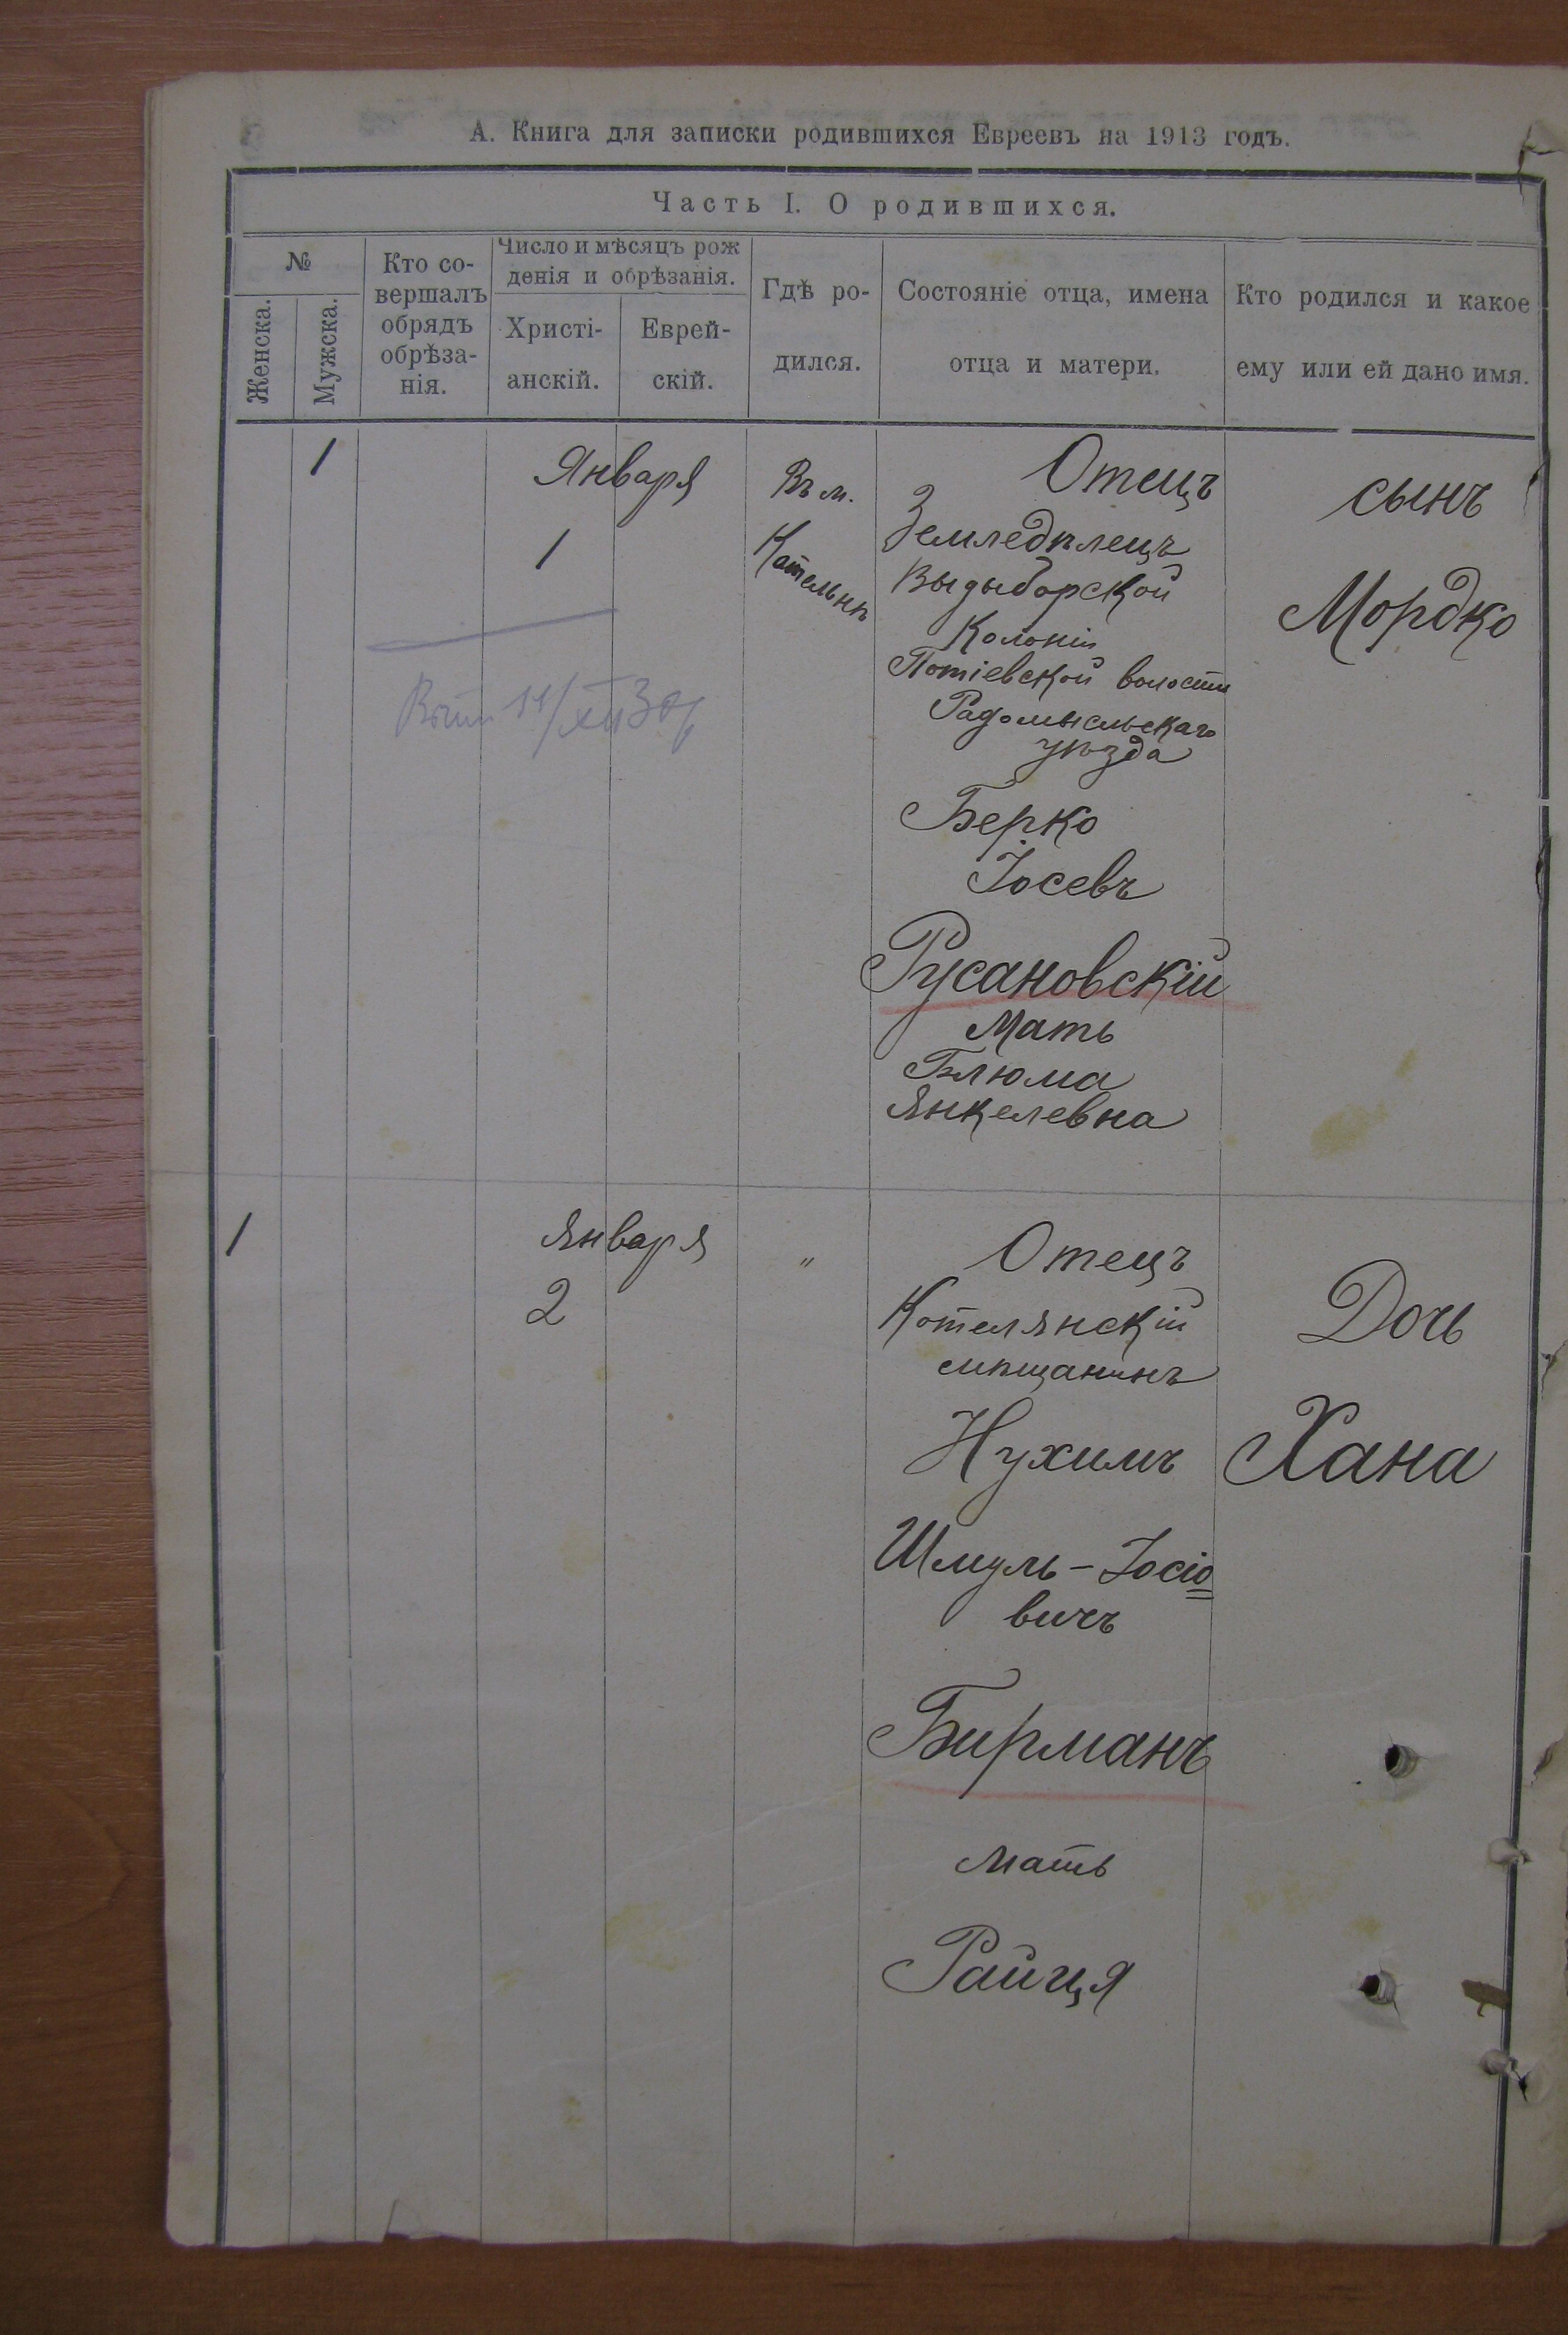 А. Книга для записки родившихся Евреевъ на 1913 годъ.
Часть I. О родившихся.
№
Женска.
Мужска.
Кто со-
вершалъ
обрядъ
обрѣза-
нія.
Число и мѣсяцъ рож
денія и обрѣзанія.
Христі-
анскій.
Еврей-
скій.
Гдѣ ро-
дился.
Состояніе отца, имена
отца и матери.
Кто родился и какое
ему или ей дано имя.
1
Января
1
Въ м.
Котельнѣ
Отецъ
Земледѣлецъ
Выдыборской
Колоніи
Потіевской волости
Радомысльскаго
уѣзда
Берко
Іосевъ
Русановскій
Мать
Блюма
Янкелевна
сынъ
Мордко
1
Января
2
"
Отецъ
Котелянскій
мѣщанинъ
Нухимъ
Шмуль-Іосіо
вичъ
Бирманъ
мать
Райця
Дочь
Хана